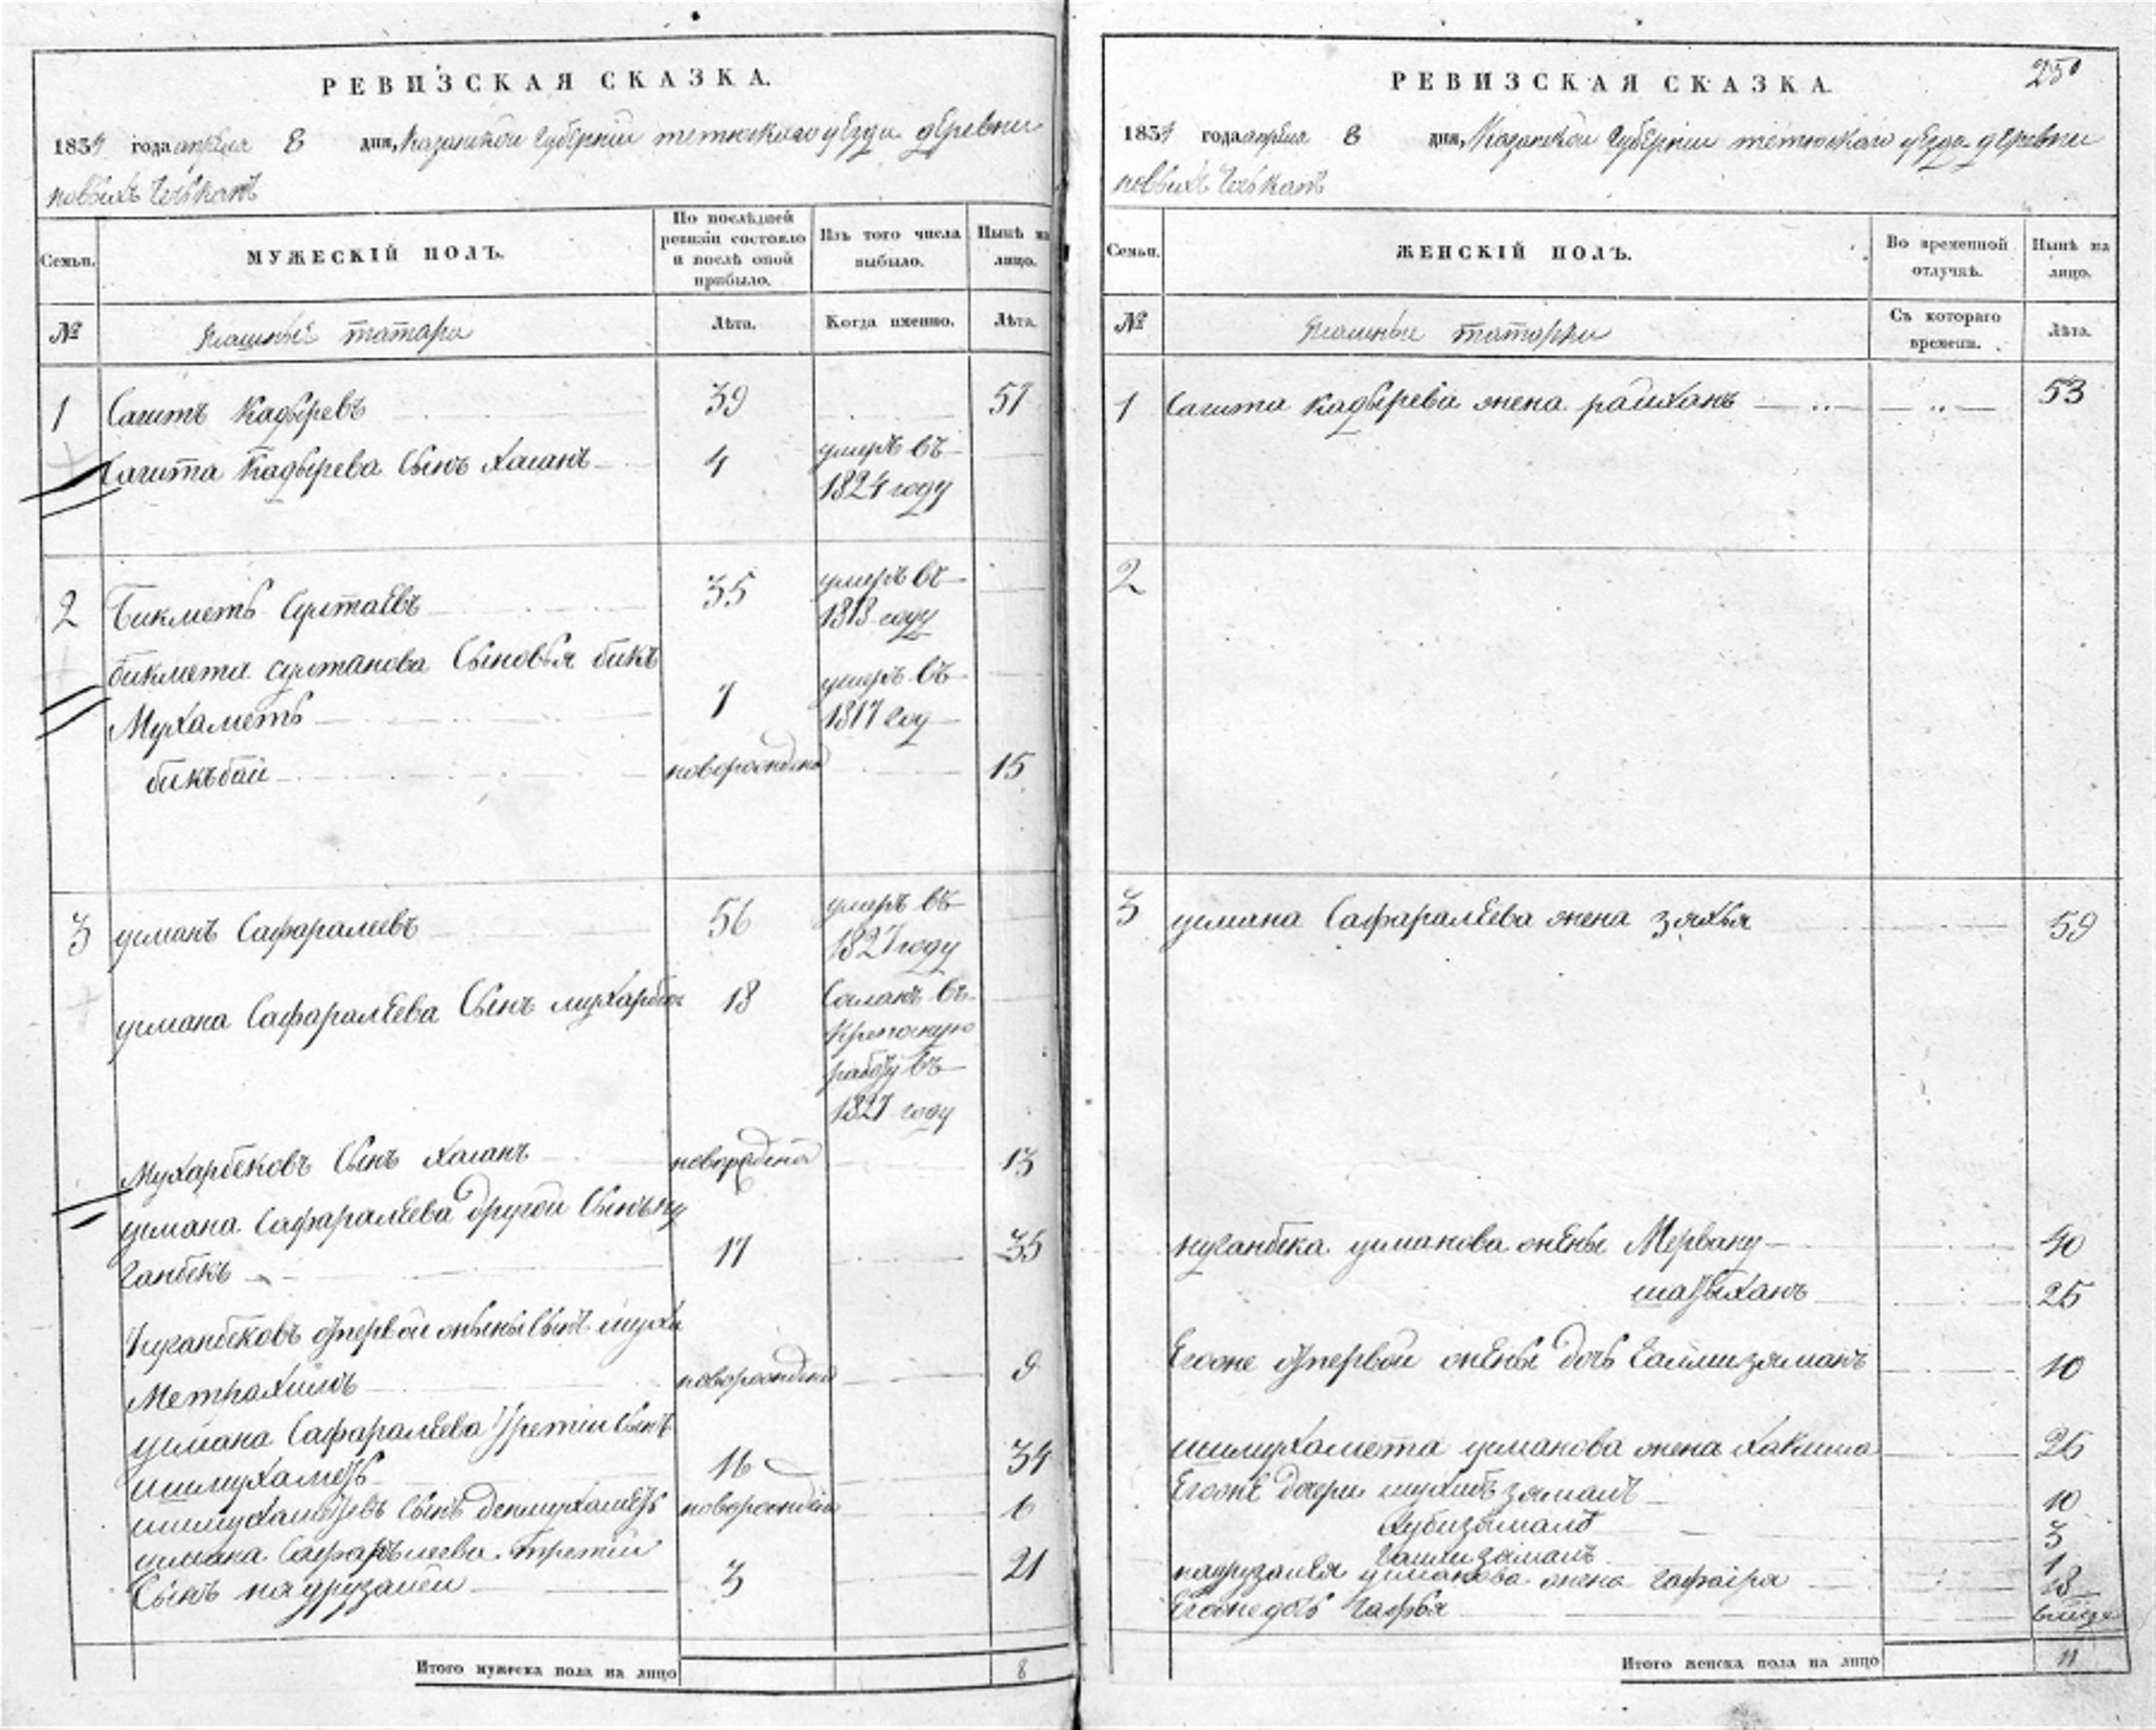 РЕВИЗСКАЯ СКАЗКА.
1834 года апреля 8 дня, Казанской губернии тетюскаго уезда деревни
новыхъ
Семьи.
МУЖЕСКІЙ ПОЛЪ.
По послѣдней ревизіи состояло и послѣ оной прибыло.
Изъ того числа выбыло.
Нынѣ на лицо.
№
татара
Лѣта.
Когда именно.
Лѣта.
1 Сагитъ Кадыревъ 39 57
Сагита Кадырева Сынъ Хасанъ 4 умеръ въ
1824 году
2 Бикметь 35 умеръ въ
1818 году
бикмета султанова Сыновья бикъ
Мухаметь 7 умеръ въ
1817 году
бикъбай новорожденъ 15
3 усманъ Сафаралеевъ 56 умеръ въ
1827 году
усмана Сафаралѣева Сынъ мухарбек 18 Сосланъ въ
Крепосную
работу въ
1827 году
Мухарбековъ Сынъ Хасанъ 13
усмана Сафаралѣева другой Сынъ ну
ганбекъ 17 35
Нуганбековъ отпервой жены Сынъ муха
метрахимъ новорожденъ 9
усмана Сафаралѣева третій Сынъ
ишмухаметъ 16 34
ишмухаметевъ Сынъ денмухаметъ новорожденъ 6
усмана третіи
Сынъ 3 21
Итого мужеска пола на лицо 8
250
РЕВИЗСКАЯ СКАЗКА.
1834 года апреля 8 дня, Казанской губернии тетюскаго уезда деревни
новыхъ
Семьи.
ЖЕНСКІЙ ПОЛЪ.
Во временной отлучкѣ.
Нынѣ на лицо.
№
татарки
Съ котораго времени.
Лѣта.
1 Сагита Кадырева жена райханъ 53
2
3 усмана Сафаралѣева жена зяхья 59
нуганбека усманова жены Мервану 40
25
Егоже отпервой жены дочь 10
ишмухамета усманова жена Хакима 25
Егоже дочери 10
3
1
усманова жена 18
Егоже дочь
Итого женска пола на лицо 11